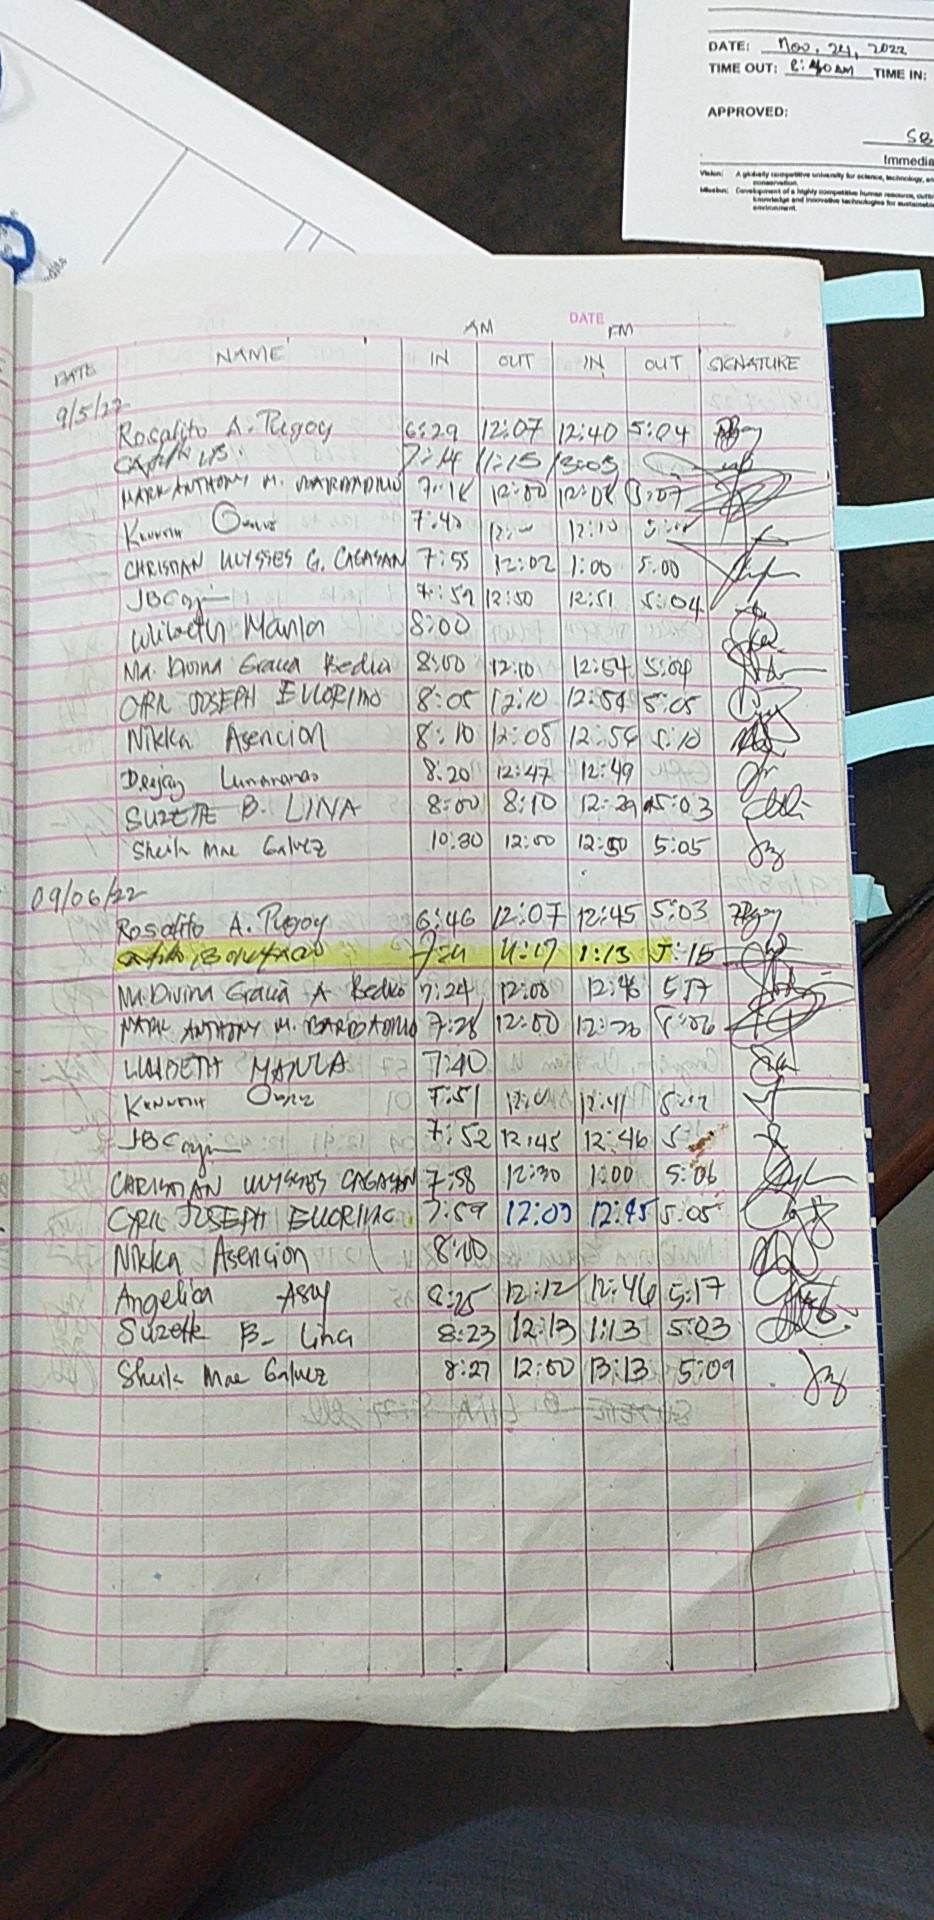 DATE: Nov. 24, 2022
TIME OUT: 8:40 AM TIME IN:
APPROVED:
SB
Immedia
Vision: A globally competitive university for science, technology, an
conservation.
Mission: Development of a highly competitive human resource, cutti
knowledge and innovative technologies for sustainable
environment.
AM DATE PM
DATE NAME IN OUT IN OUT SIGNATURE
9/5/22
Rosalito A. Pugoy 6:29 12:07 12:40 5:04
7:14 11:15 13:03
MARK ANTHONY M. BARBADILLO 7:18 12:00 12:08
Kenneth 7:40 12:10
CHRISTIAN ULYSSES G. CAGASAN 7:55 12:02 1:00 5:00
7:59 12:50 12:51 5:04
Lilibeth Manla 8:00
Ma. Divina Gracia Bedio 8:00 12:10 12:54 5:04
CYRIL JOSEPH ELLORINO 8:05 12:10 12:54 5:05
Nikka Asencion 8:10 12:05 12:54 5:10
Deejay Lumanao 8:20 12:47 12:49
SUZETTE B. LINA 8:00 8:10 12:29 5:03
Sheila Mae Galvez 10:30 12:00 12:50 5:05
09/06/22
Rosalito A. Pugoy 6:46 12:07 12:45 5:03
7:21 11:17 1:13 5:15
Ma. Divina Gracia A Bedio 7:24 12:00 12:46 5:17
MARK ANTHONY M. BARBADILLO 7:28 12:00 12:20 5:06
LILIBETH MANLA 7:40
Kenneth 7:51 12:41
7:52 12:45 12:46
CHRISTIAN ULYSSES CAGASAN 7:58 12:30 1:00 5:06
CYRIL JOSEPH ELLORINO 7:59 12:03 12:45 5:05
Nikka Asencion 8:00
Angelica Asuy 8:25 12:12 12:46 5:17
Suzette B. Lina 8:23 12:13 1:13 5:03
Sheila Mae Galvez 8:27 12:00 13:13 5:09